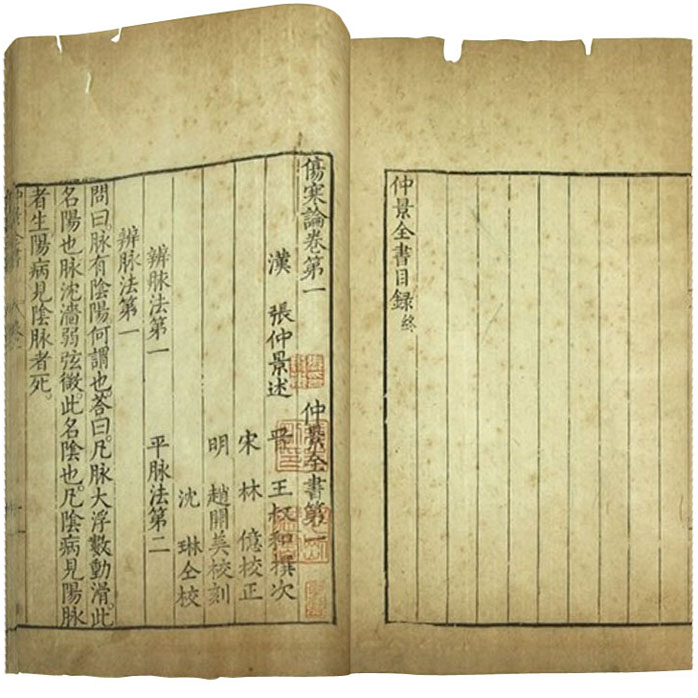 仲景全書目録終
傷寒論卷第一 仲景全書第一
漢 張仲景述 晋 王叔和撰次
宋 林 億校正
明 趙開美校刻
沈 琳仝校
辨脉法第一 平脉法第二
辨脉法第一
問曰。脉有陰陽何謂也。荅曰。凡脉大浮數動滑。此
名陽也。脉沈濇弱弦微。此名陰也。凡陰病見陽脉
者生。陽病見陰脉者死。